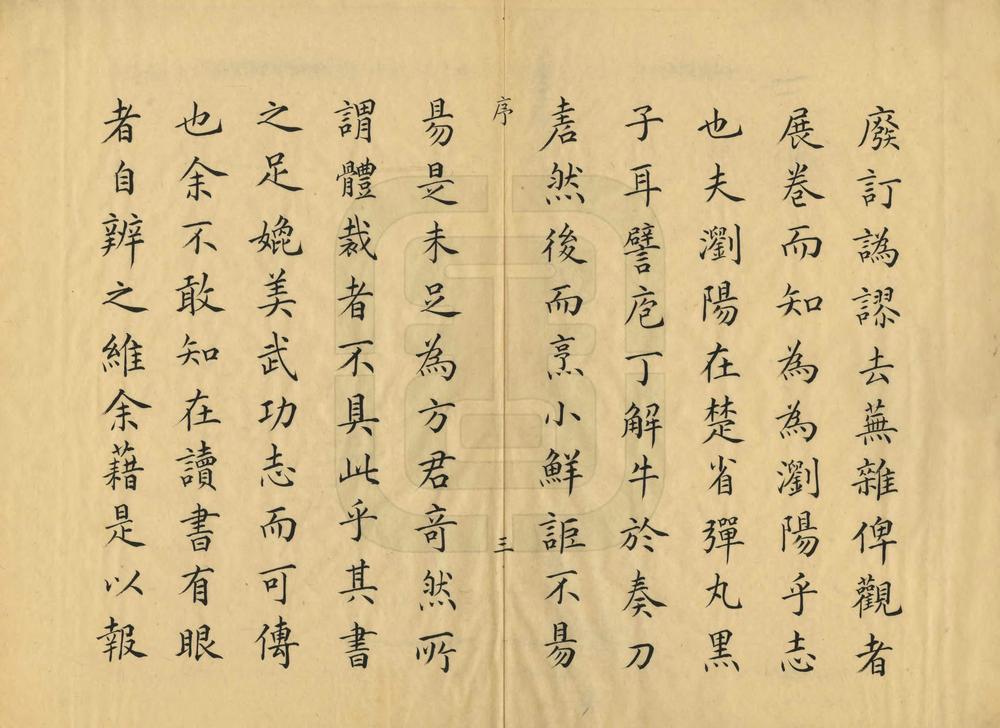 廢訂譌謬去蕪雜俾觀者
展卷而知為為瀏陽乎志
也夫瀏陽在楚省彈丸黑
子耳譬庖丁解牛於奏刀
砉然後而烹小鮮詎不易
序
三
易是未足為方君奇然所
謂體裁者不具此乎其書
之足媲美武功志而可傳
也余不敢知在讀書有眼
者自辨之維余藉是以報